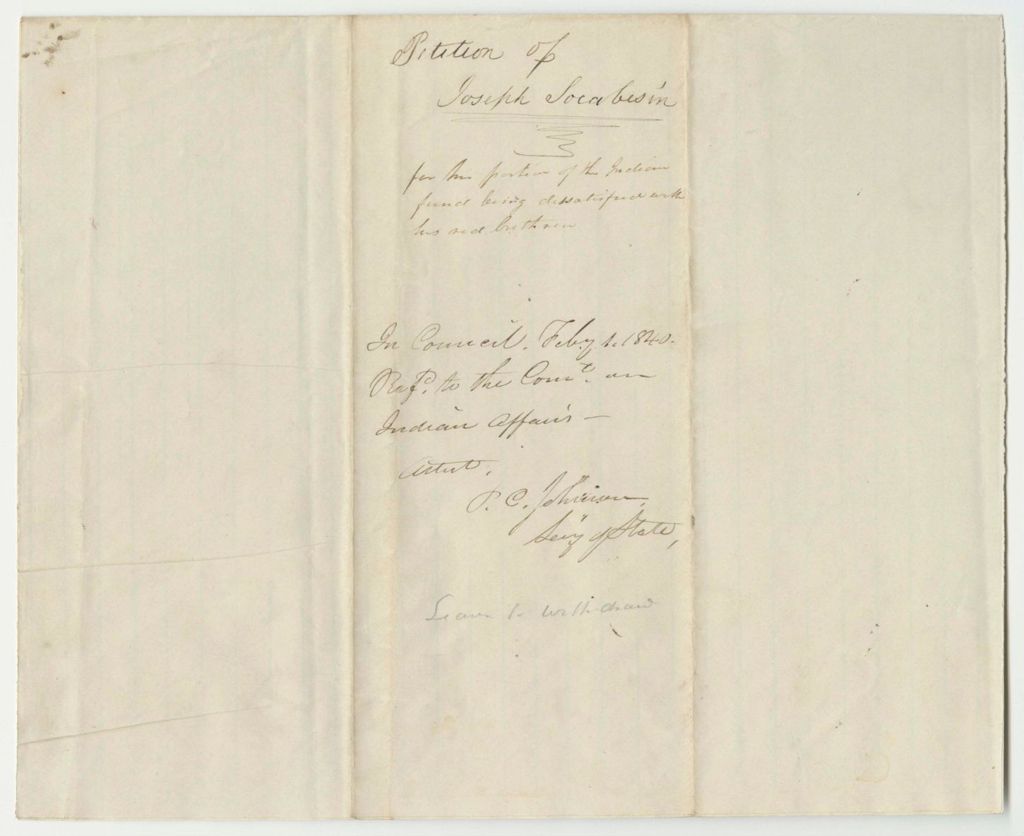 Petition of
Joseph Socabesin
for his portion of the Indian
fund being dissatisfied with
his red brethren
In Council. Feby 1. 1840.
Refd. to the Comte. on
Indian Affairs —
Attest,
P. C. Johnson,
Secy of State,
Leave to withdraw